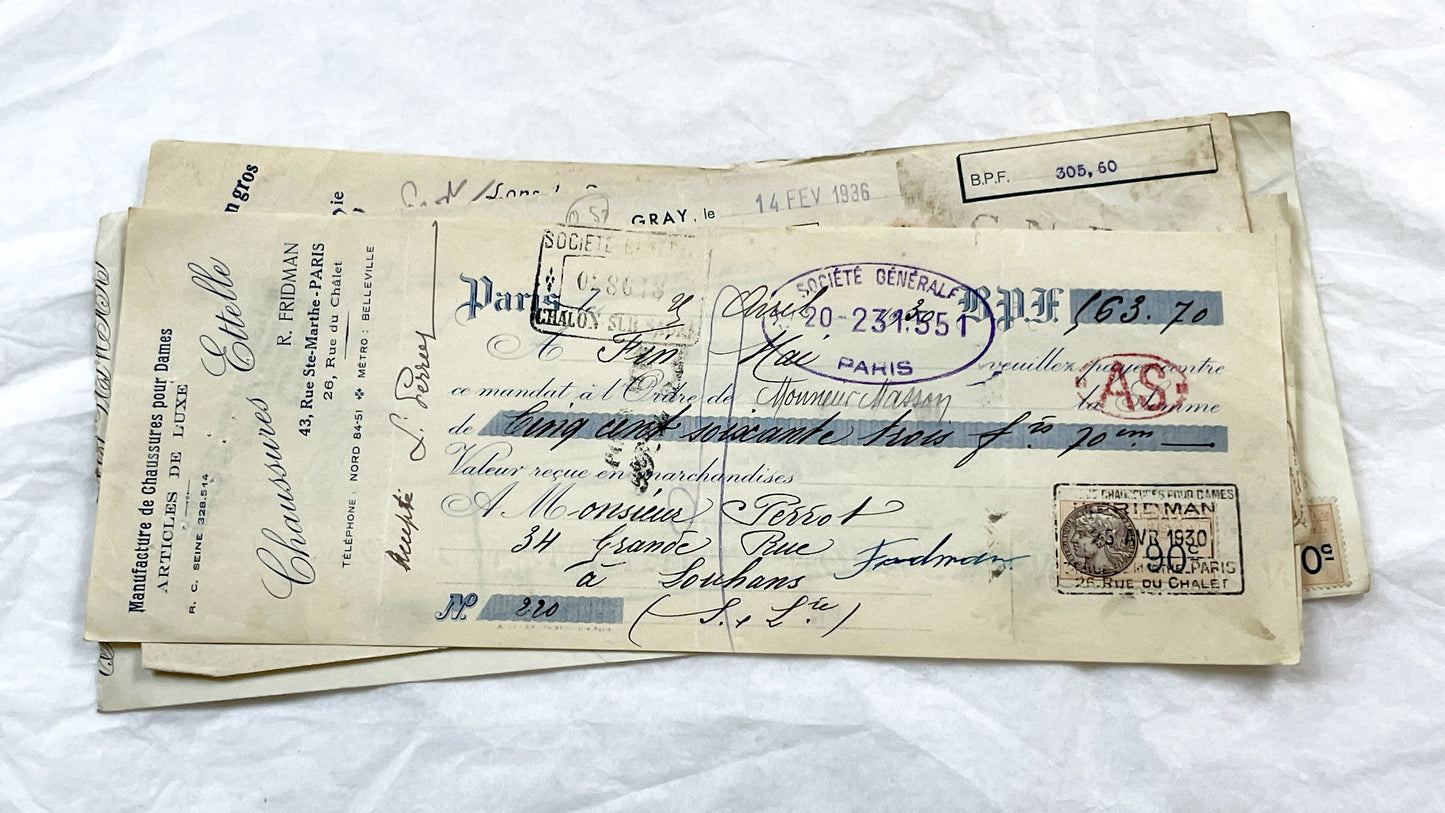 n gros
ie
GRAY, le 14 FEV 1936
B.P.F. 305,60
Manufacture de Chaussures pour Dames
ARTICLES DE LUXE
R. C. SEINE 328.514
Chaussures Ettelle
R. FRIDMAN
43, Rue Ste-Marthe - PARIS
26, Rue du Châlet
TÉLÉPHONE : NORD 84-51 ✤ MÉTRO : BELLEVILLE
Accepté
SOCIÉTÉ
CHALON SUR
SOCIÉTÉ GÉNÉRALE
20-231.551
PARIS
Paris, Avril 30 BPF 163.70
A Fin Mai veuillez payer contre
ce mandat, à l'Ordre de Monsieur Masson la Somme
AS
de Cinq cent soixante trois frs 70 cms
Valeur reçue en marchandises
A Monsieur Perrot
34 Grande Rue
à Louhans
(S. & Lre)
Fridman
No. 220
CHAUSSURES POUR DAMES
FRIDMAN
25 AVR 1930
90c
PARIS
26. RUE DU CHALET
0c